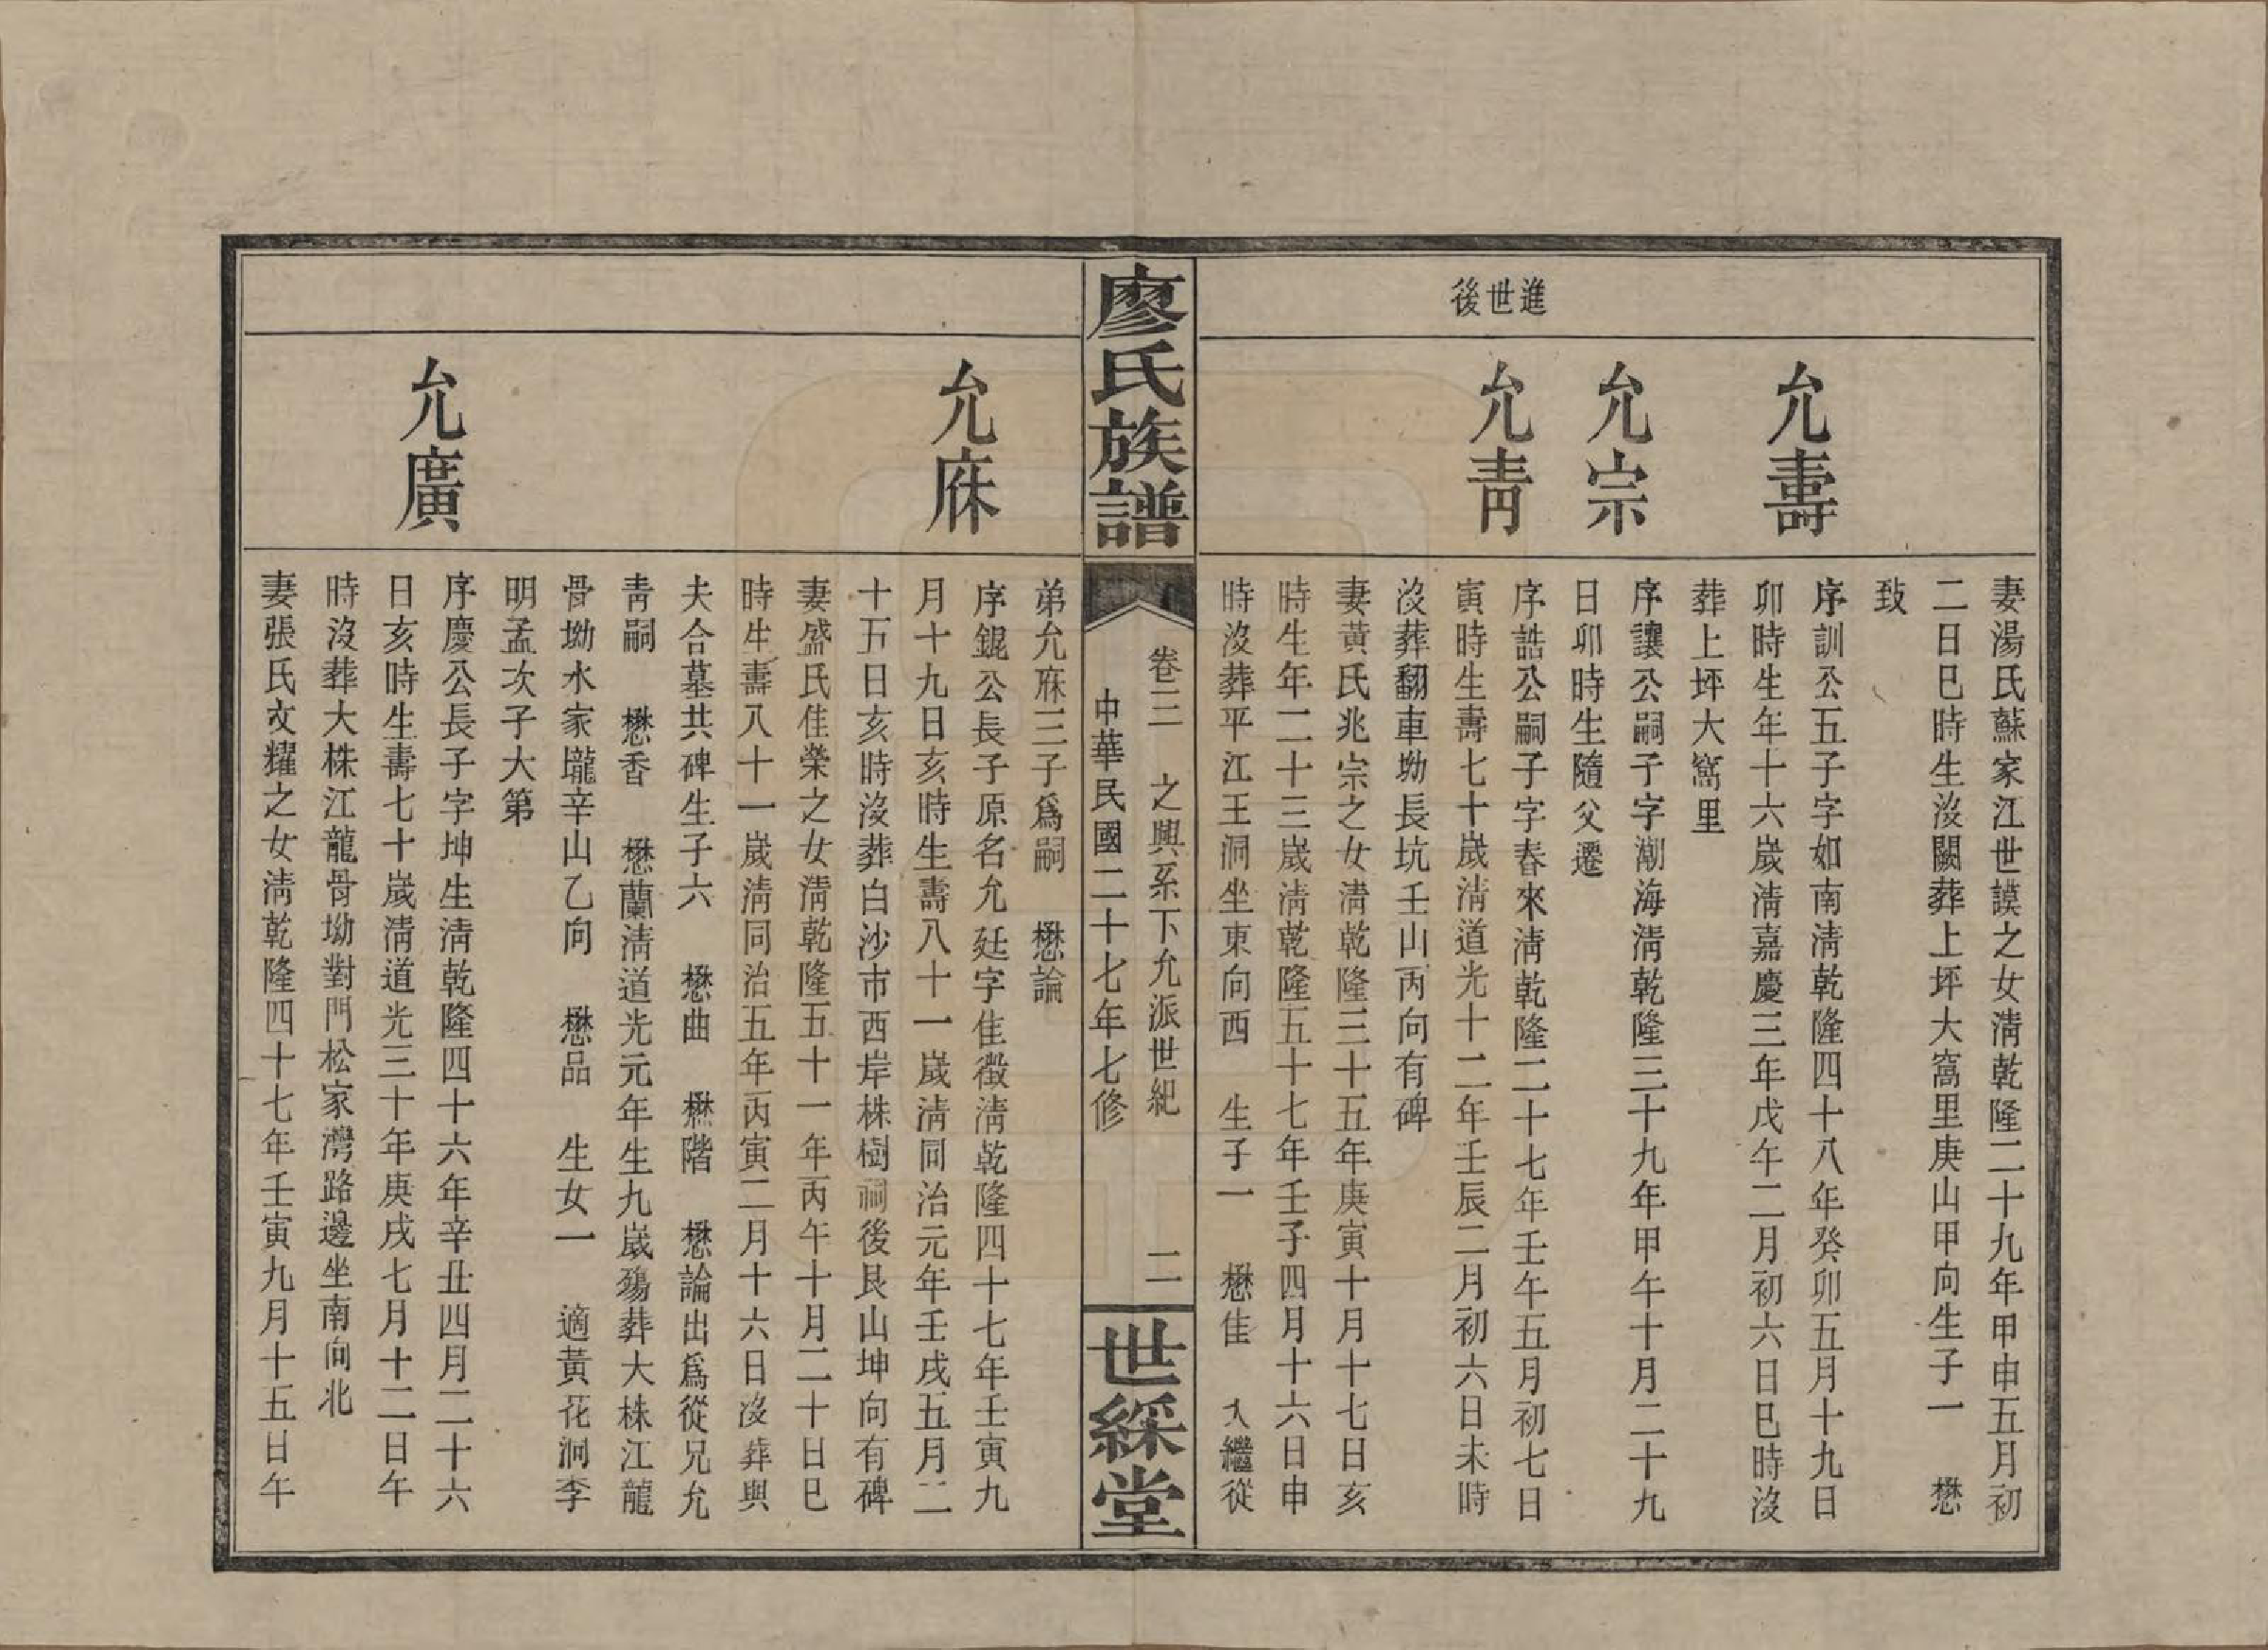 進世後
妻湯氏蘇家江世謨之女淸乾隆二十九年甲申五月初
二日巳時生沒闕葬上坪大窩里庚山甲向生子一　懋
致
允壽
序訓公五子字如南淸乾隆四十八年癸卯五月十九日
卯時生年十六歲淸嘉慶三年戊午二月初六日巳時沒
葬上坪大窩里
允宗
序讓公嗣子字潮海淸乾隆三十九年甲午十月二十九
日卯時生隨父遷
允靑
序誥公嗣子字春來淸乾隆二十七年壬午五月初七日
寅時生壽七十歲淸道光十二年壬辰二月初六日未時
沒葬翻車坳長坑壬山丙向有碑
妻黃氏兆宗之女淸乾隆三十五年庚寅十月十七日亥
時生年二十三歲淸乾隆五十七年壬子四月十六日申
時沒葬平江王洞坐東向西　生子一　懋佳　入繼從
廖氏族譜
卷三　之興系下允派世紀　二
中華民國二十七年七修
世綵堂
弟允庥三子爲嗣　懋論
允庥
序錕公長子原名允廷字佳徵淸乾隆四十七年壬寅九
月十九日亥時生壽八十一歲淸同治元年壬戌五月二
十五日亥時沒葬白沙市西岸株樹祠後艮山坤向有碑
妻盛氏佳榮之女淸乾隆五十一年丙午十月二十日巳
時生壽八十一歲淸同治五年丙寅二月十六日沒葬與
夫合墓共碑生子六　懋曲　懋階　懋論出爲從兄允
靑嗣　懋香　懋蘭淸道光元年生九歲殤葬大株江龍
骨坳水家壠辛山乙向　懋品　生女一　適黃花洞李
明孟次子大第
允廣
序慶公長子字坤生淸乾隆四十六年辛丑四月二十六
日亥時生壽七十歲淸道光三十年庚戌七月十二日午
時沒葬大株江龍骨坳對門松家灣路邊坐南向北
妻張氏文耀之女淸乾隆四十七年壬寅九月十五日午